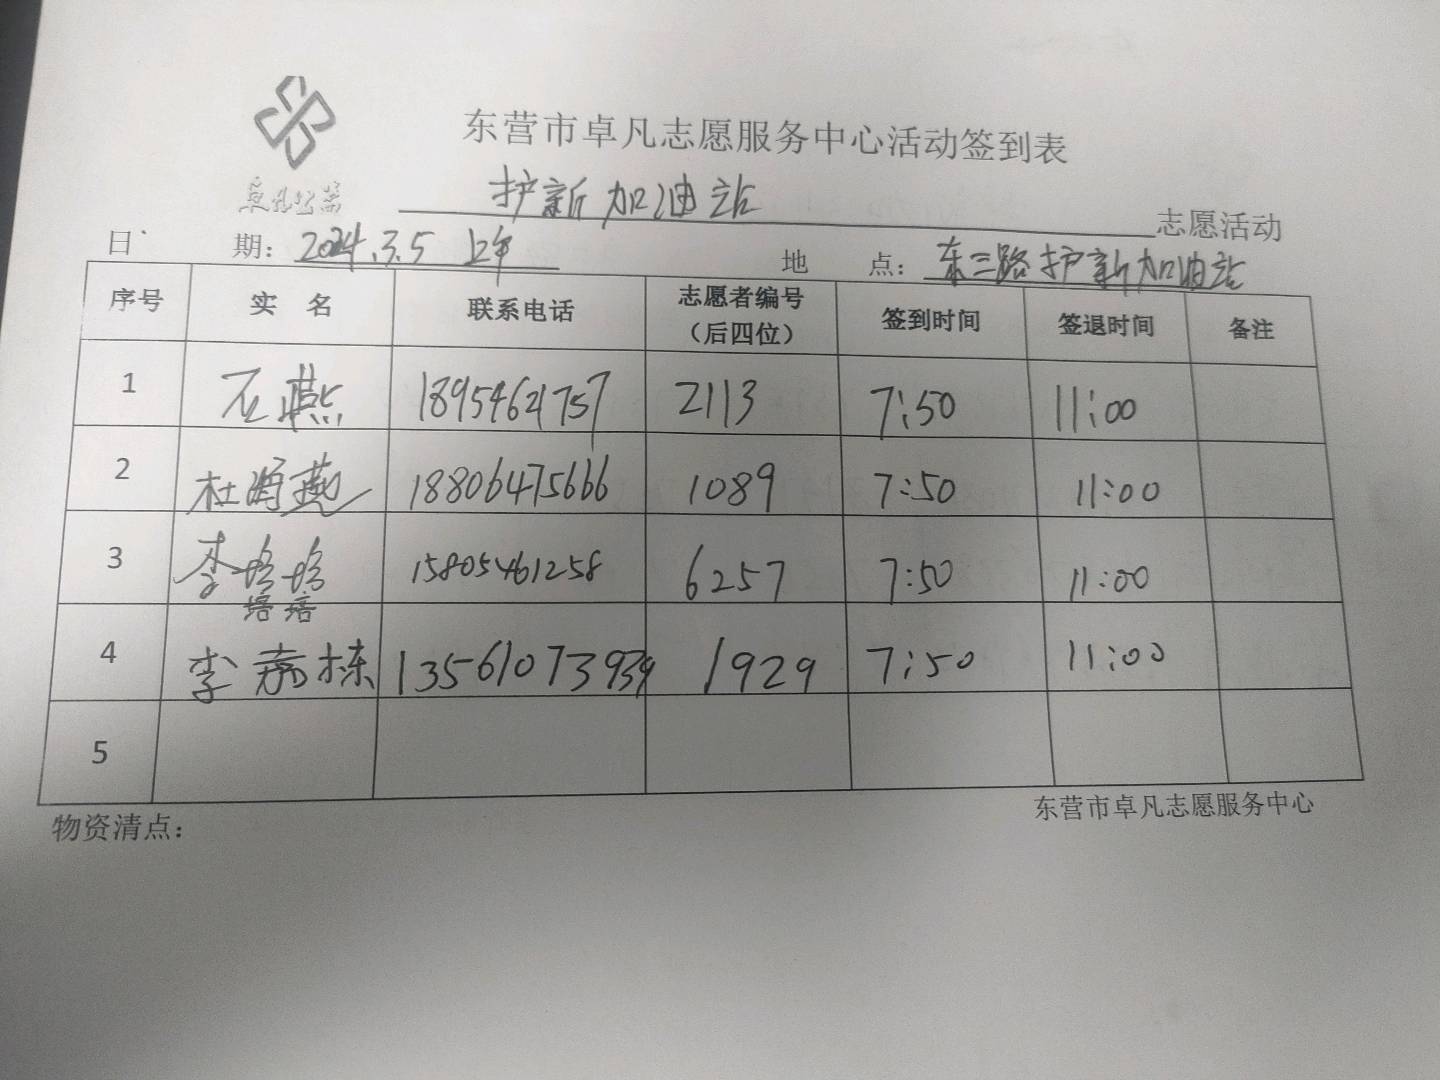 东营市卓凡志愿服务中心活动签到表
卓凡公益
护新加油站 志愿活动
日 期：2024.3.5 上午 地 点：东三路护新加油站
序号 实 名 联系电话 志愿者编号（后四位） 签到时间 签退时间 备注
1 石燕 18954621757 2113 7:50 11:00
2 杜海燕 18806475666 1089 7:50 11:00
3 李培培 15805461258 6257 7:50 11:00
培培
4 李嘉栋 13561073939 1929 7:50 11:00
5
物资清点： 东营市卓凡志愿服务中心